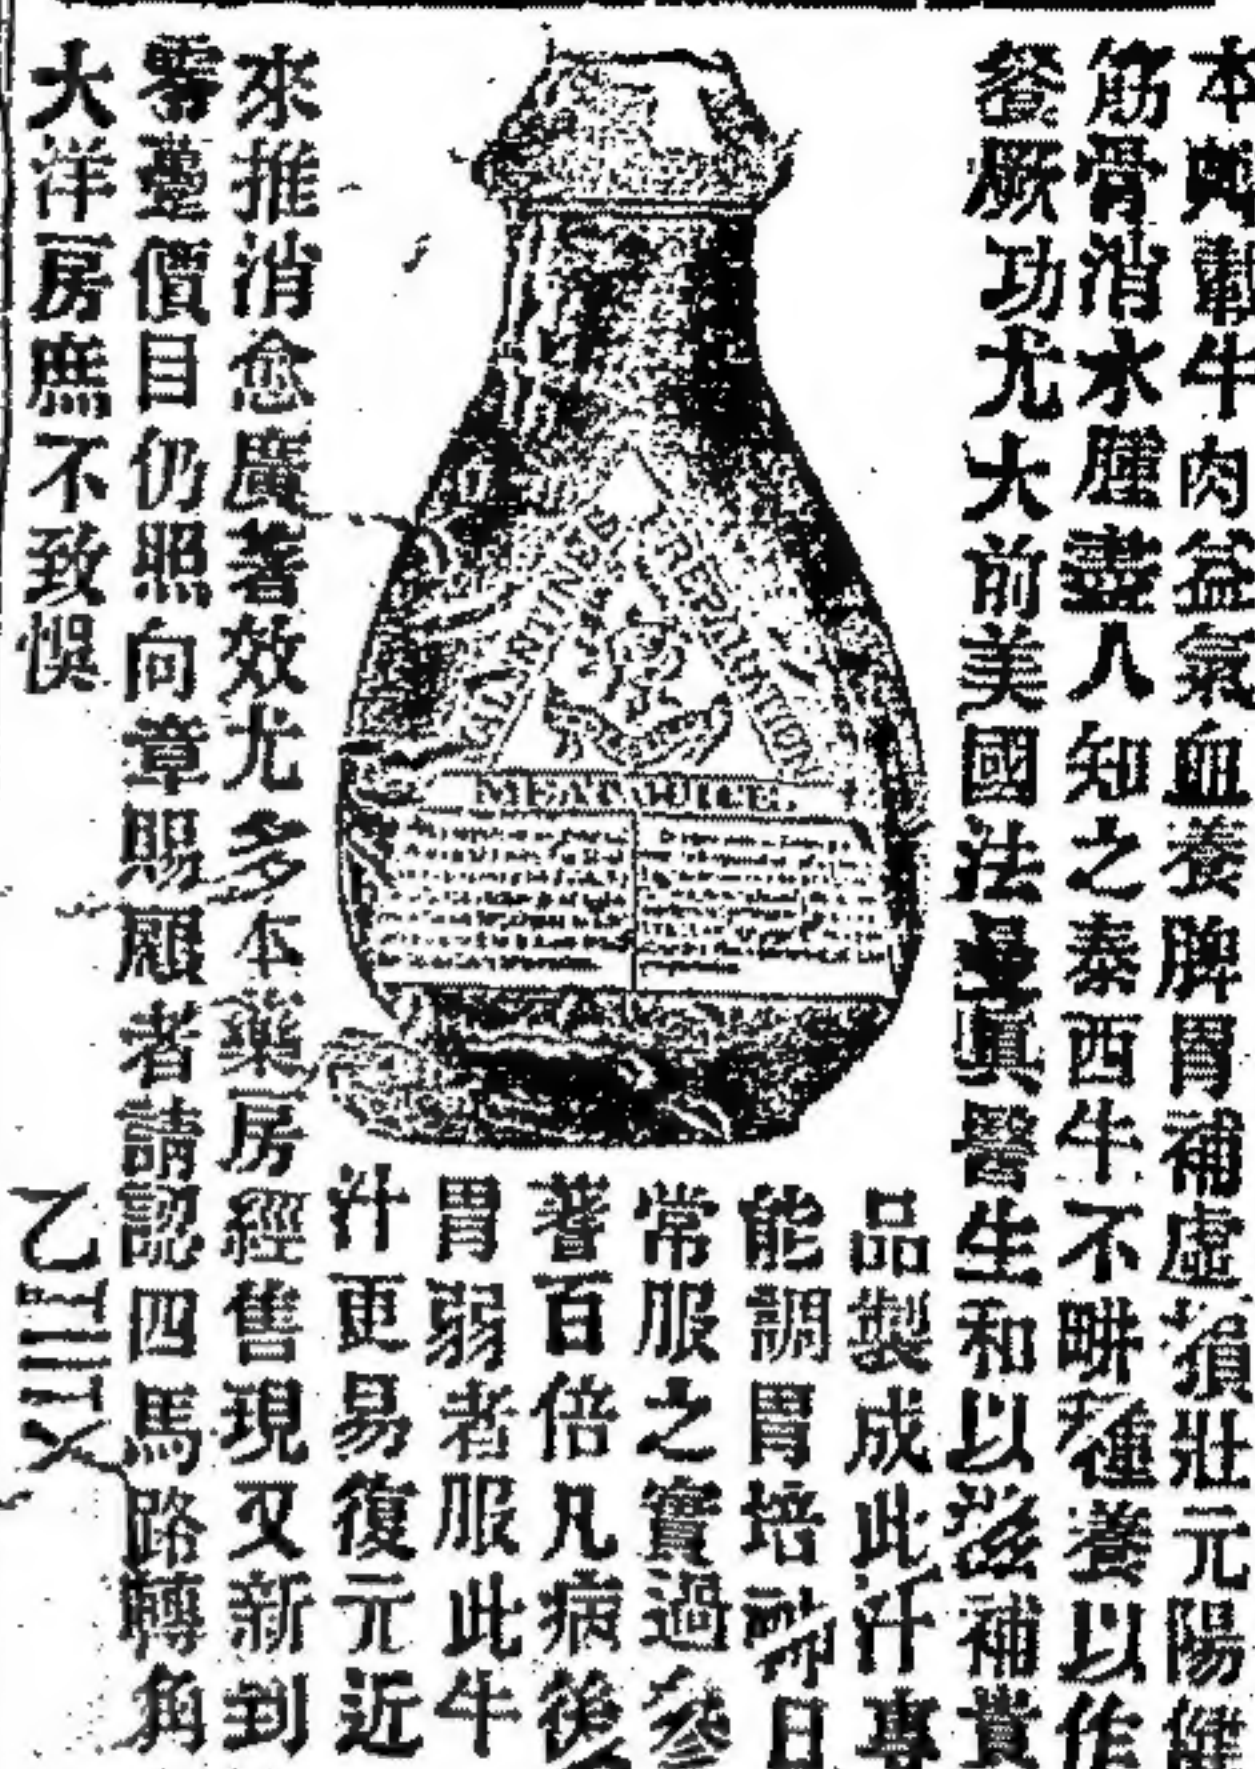 本典載牛肉益氣血養脾胃補虛損壯元陽健
筋骨消水腫盡人知之泰西牛不畊種養以作
餐厥功尤大前美國法曼眞醫生和以滋補貴
品製成此汁專
能調胃培神日
常服之實過參
蓍百倍凡病後
胃弱者服此牛
汁更易復元近
來推消愈廣著效尤多本藥房經售現又新到
零躉價目仍照向章賜顧者請認四馬路轉角
大洋房庶不致悞
VALENTINE'S PREPARATION
MEAT JUICE.